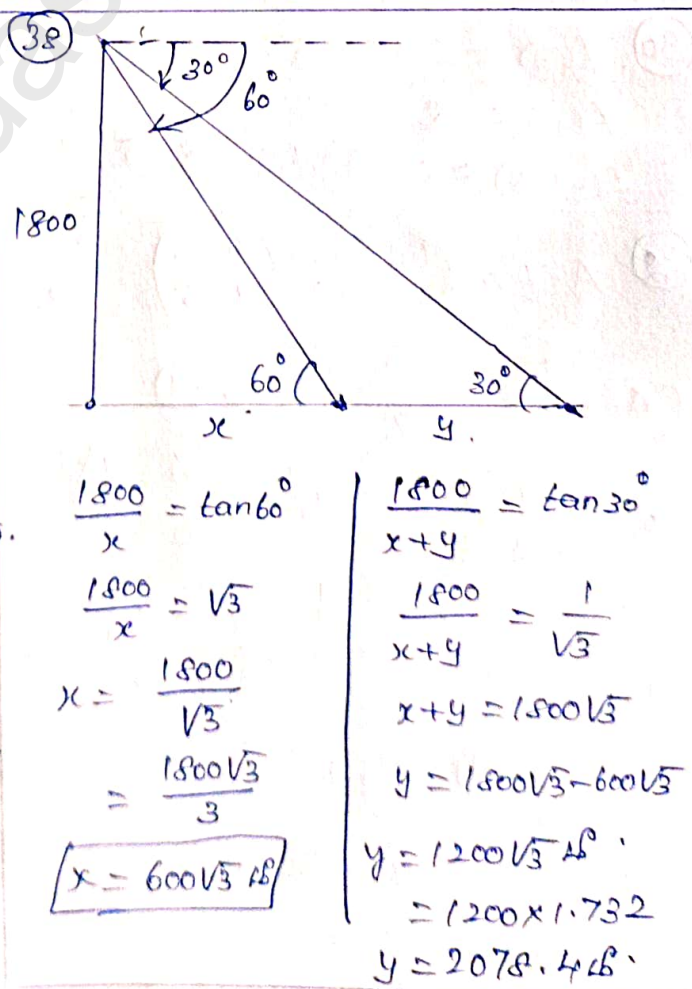 38
30°
60°
1800
60°
30°
x
y.
1800/x = tan60°
1800/x = √3
x = 1800/√3
= 1800√3/3
x = 600√3 மீ
1800/x+y = tan30°
1800/x+y = 1/√3
x+y = 1800√3
y = 1800√3-600√3
y = 1200√3 மீ.
= 1200×1.732
y = 2078.4மீ.